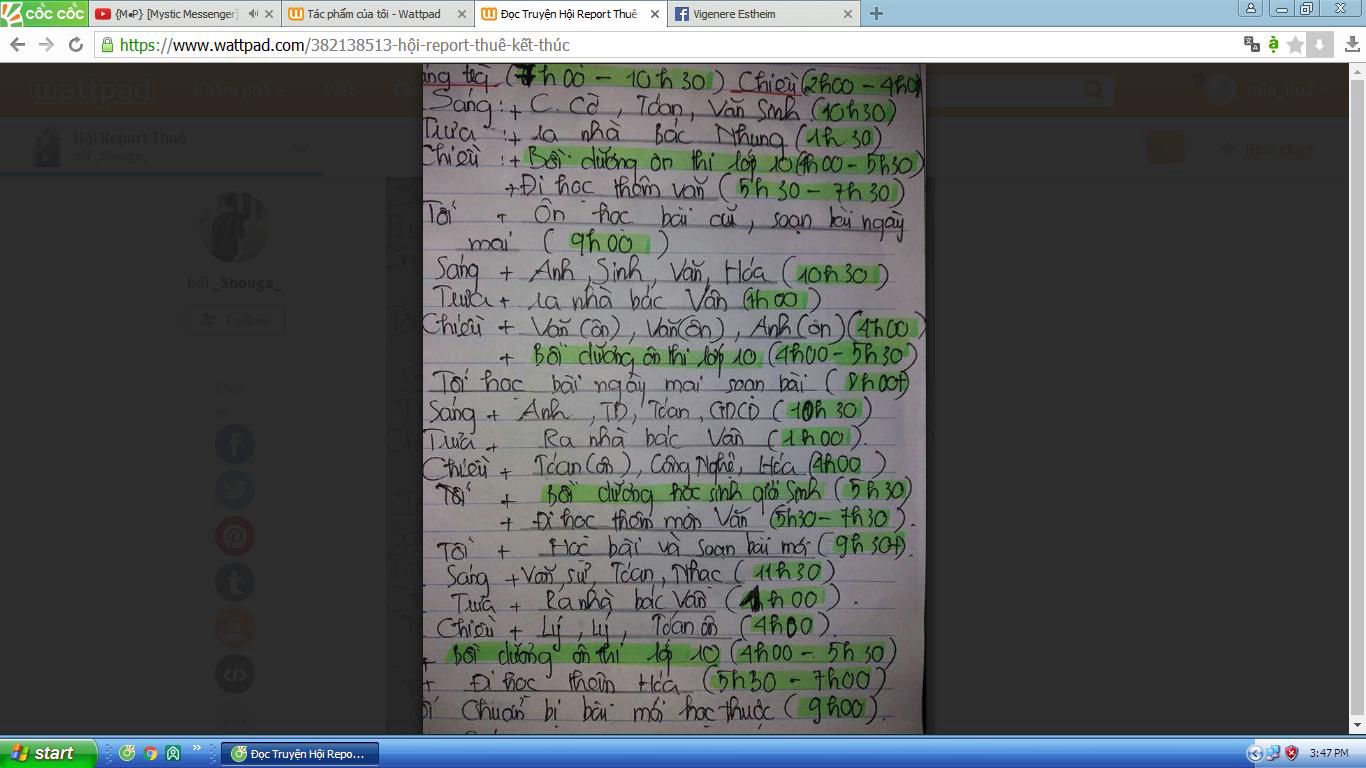 CỐC CỐC
{M●P} [Mystic Messenger]
Tác phẩm của tôi - Wattpad
Đọc Truyện Hội Report Thuê
Vigenere Estheim
https://www.wattpad.com/382138513-hội-report-thuê-kết-thúc
wattpad
Khám phá
Viết
mia_liu7
Hội Report Thuê
bởi _Shouga_
Bình chọn
(7h00 - 10h30) Chiều (2h00 - 4h0
Sáng : + C. Cờ, Toán, Văn, Sinh (10h30)
Trưa : + ra nhà bác Nhung (1h30)
Chiều : + Bồi dưỡng ôn thi lớp 10 (4h00 - 5h30)
+ Đi học thêm văn (5h30 - 7h30)
Tối + Ôn học bài cũ, soạn bài ngày
mai (9h00)
Sáng + Anh, Sinh, Văn, Hóa (10h30)
Trưa + ra nhà bác Vân (1h00)
Chiều + Văn (ôn), Văn (ôn), Anh (ôn) (4h00)
+ Bồi dưỡng ôn thi lớp 10 (4h00 - 5h30)
Tối học bài ngày mai soạn bài (8h00+)
Sáng + Anh, TD, Toán, GDCD (10h30)
Trưa + Ra nhà bác Vân (1h00).
Chiều + Toán (ôn), Công Nghệ, Hóa (4h00)
Tối + Bồi dưỡng học sinh giỏi Sinh (5h30)
+ Đi học thêm môn Văn (5h30 - 7h30).
Tối + Học bài và soạn bài mới (9h30+).
Sáng + Văn, sử, Toán, Nhạc (11h30)
Trưa + Ra nhà bác Vân (1h00).
Chiều + Lý, Lý, Toán ôn (4h00).
+ Bồi dưỡng ôn thi lớp 10 (4h00 - 5h30)
+ Đi học thêm Hóa (5h30 - 7h00)
Chuẩn bị bài mới học thuộc (9h00).
bởi _Shouga_
Follow
start
Đọc Truyện Hội Repo...
3:47 PM